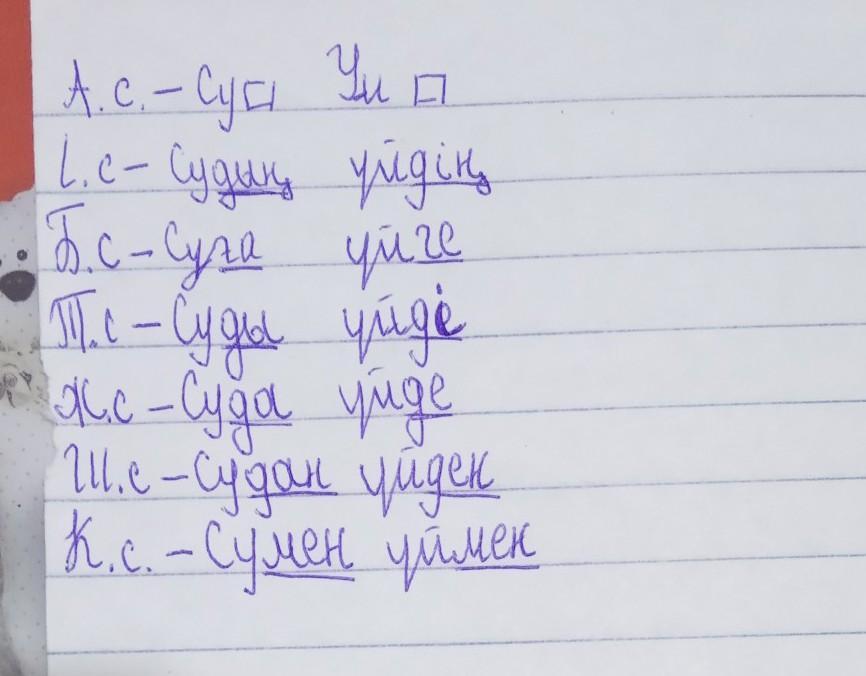 А.с. – Су□ Үй □
І.с – Судың үйдің
Б.с – Суға үйге
Т.с – Суды үйді
Ж.с – Суда үйде
Ш.с – Судан үйден
К.с. – Сумен үймен